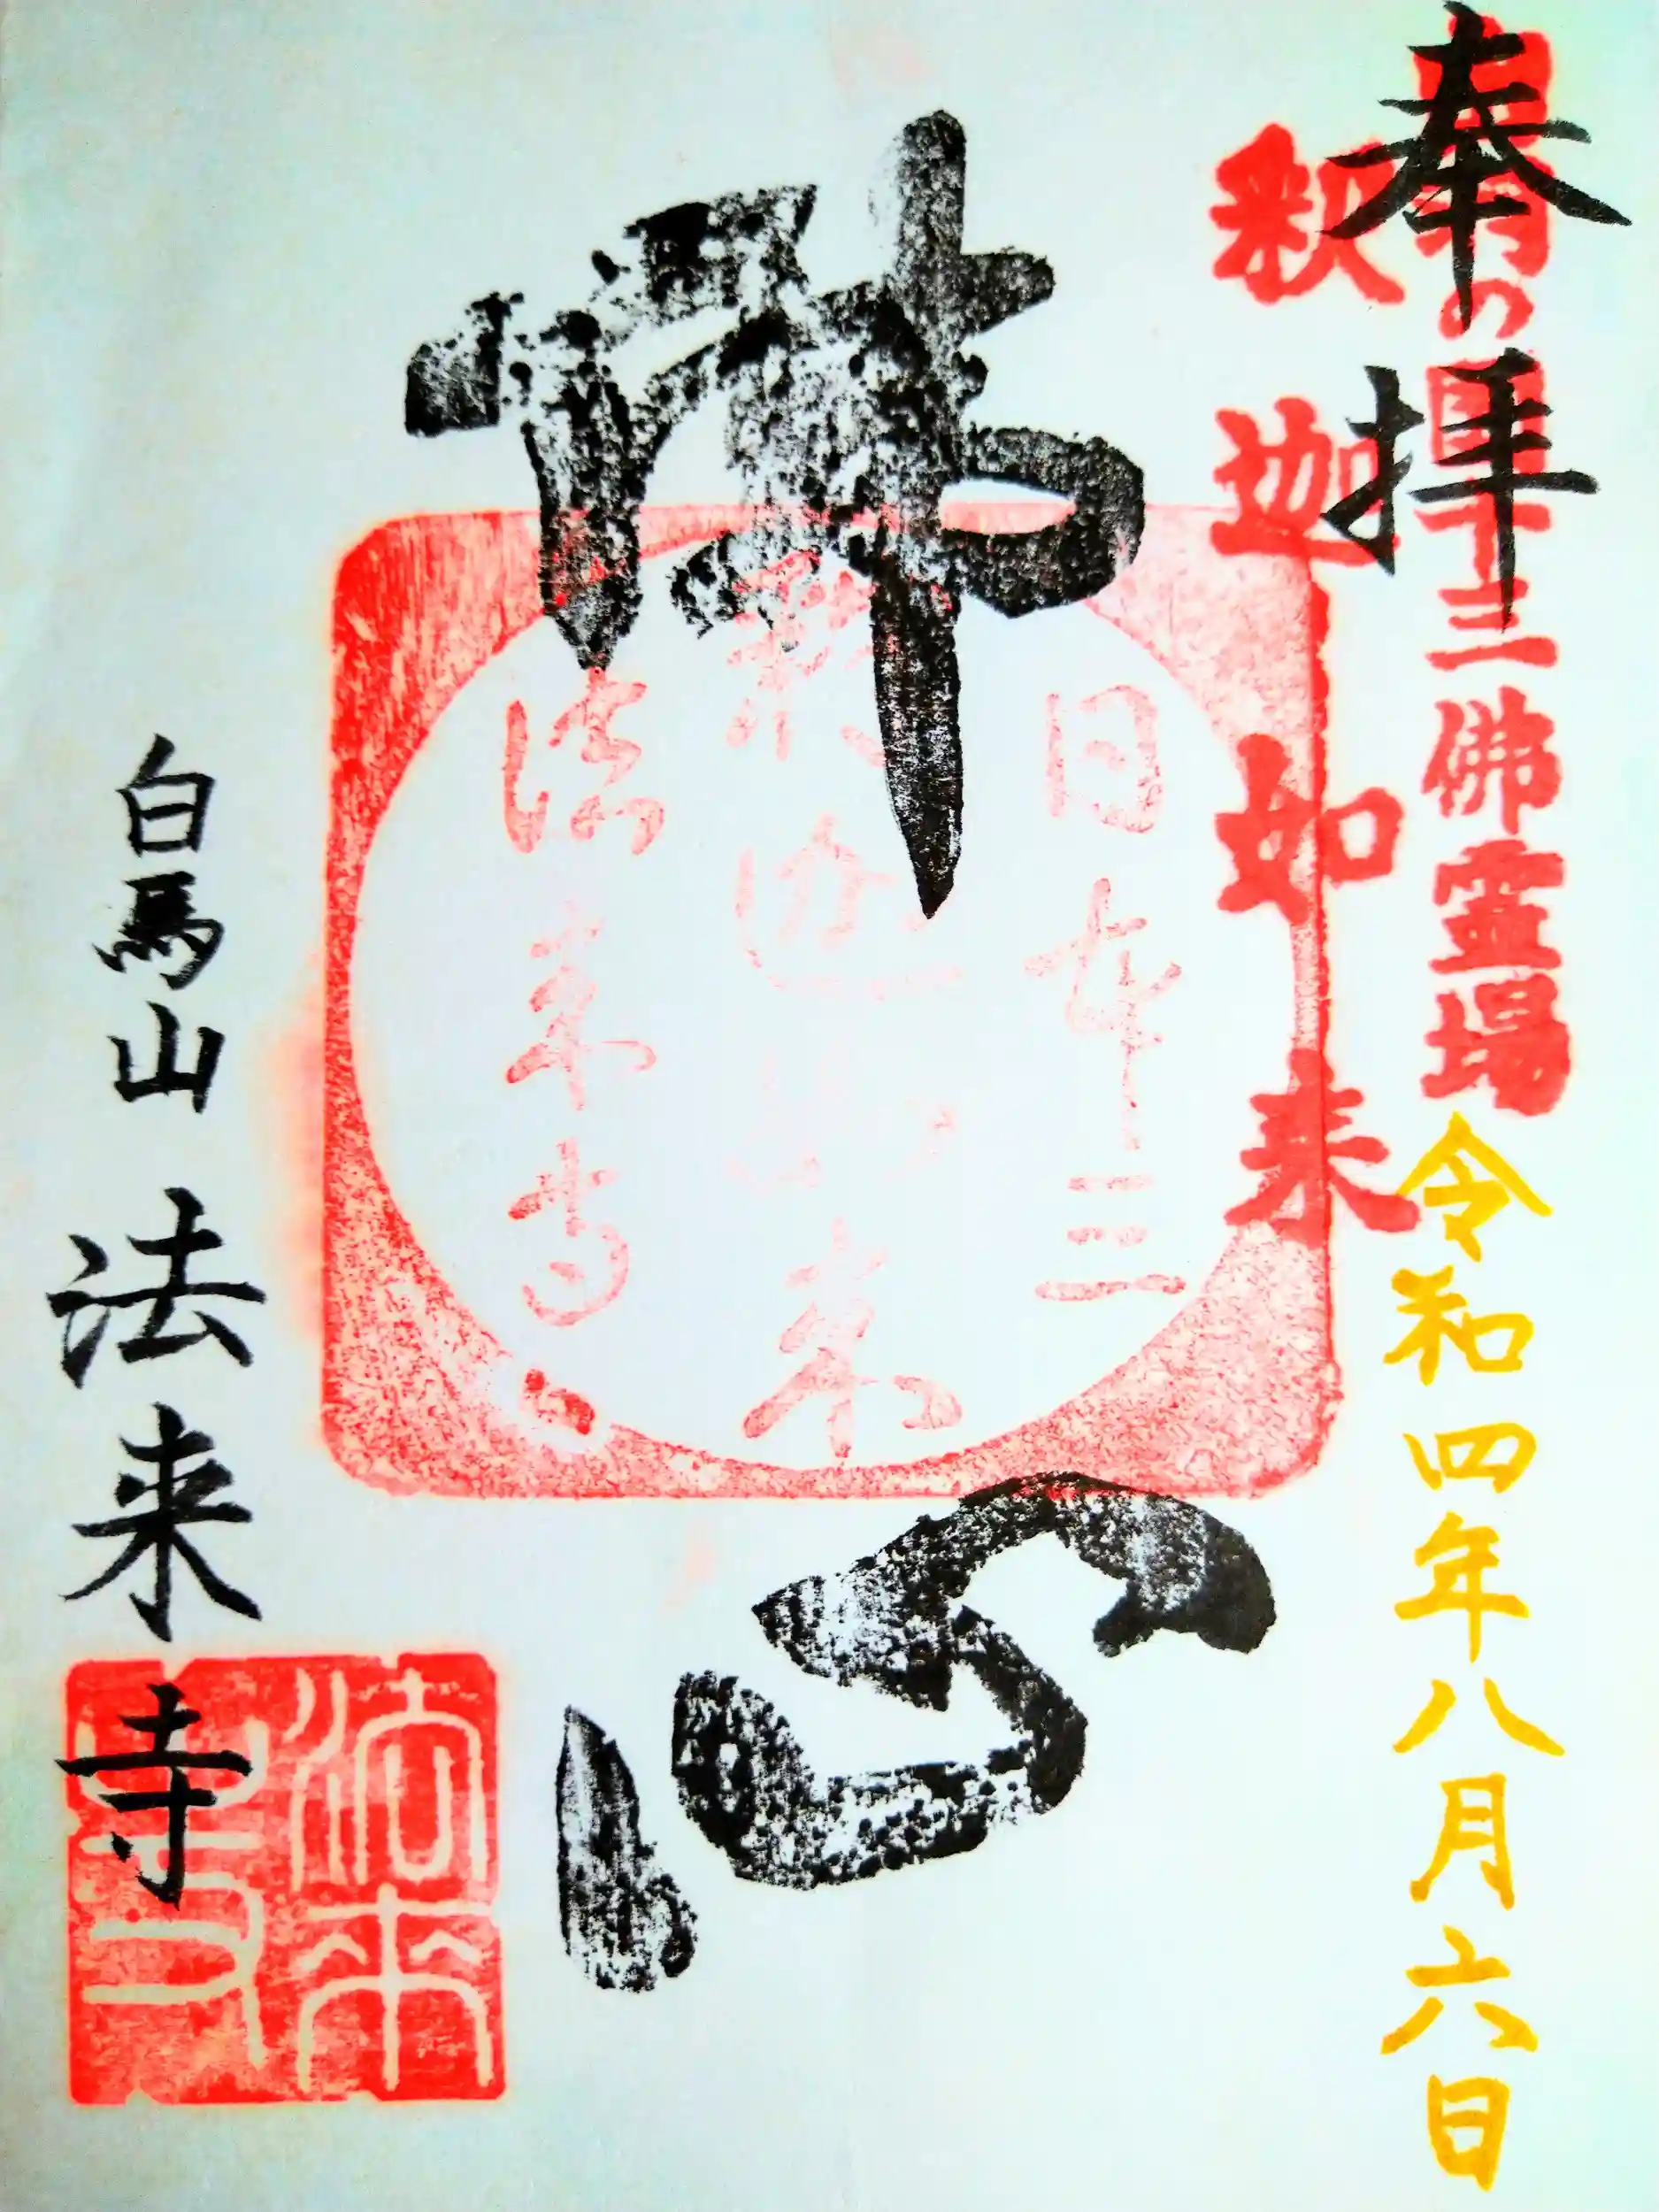 奉拝
出羽の国十三佛霊場
令和四年八月六日
釈迦如来
佛心
日本三
釈迦如来
法来寺
白馬山 法来寺
法来
寺印